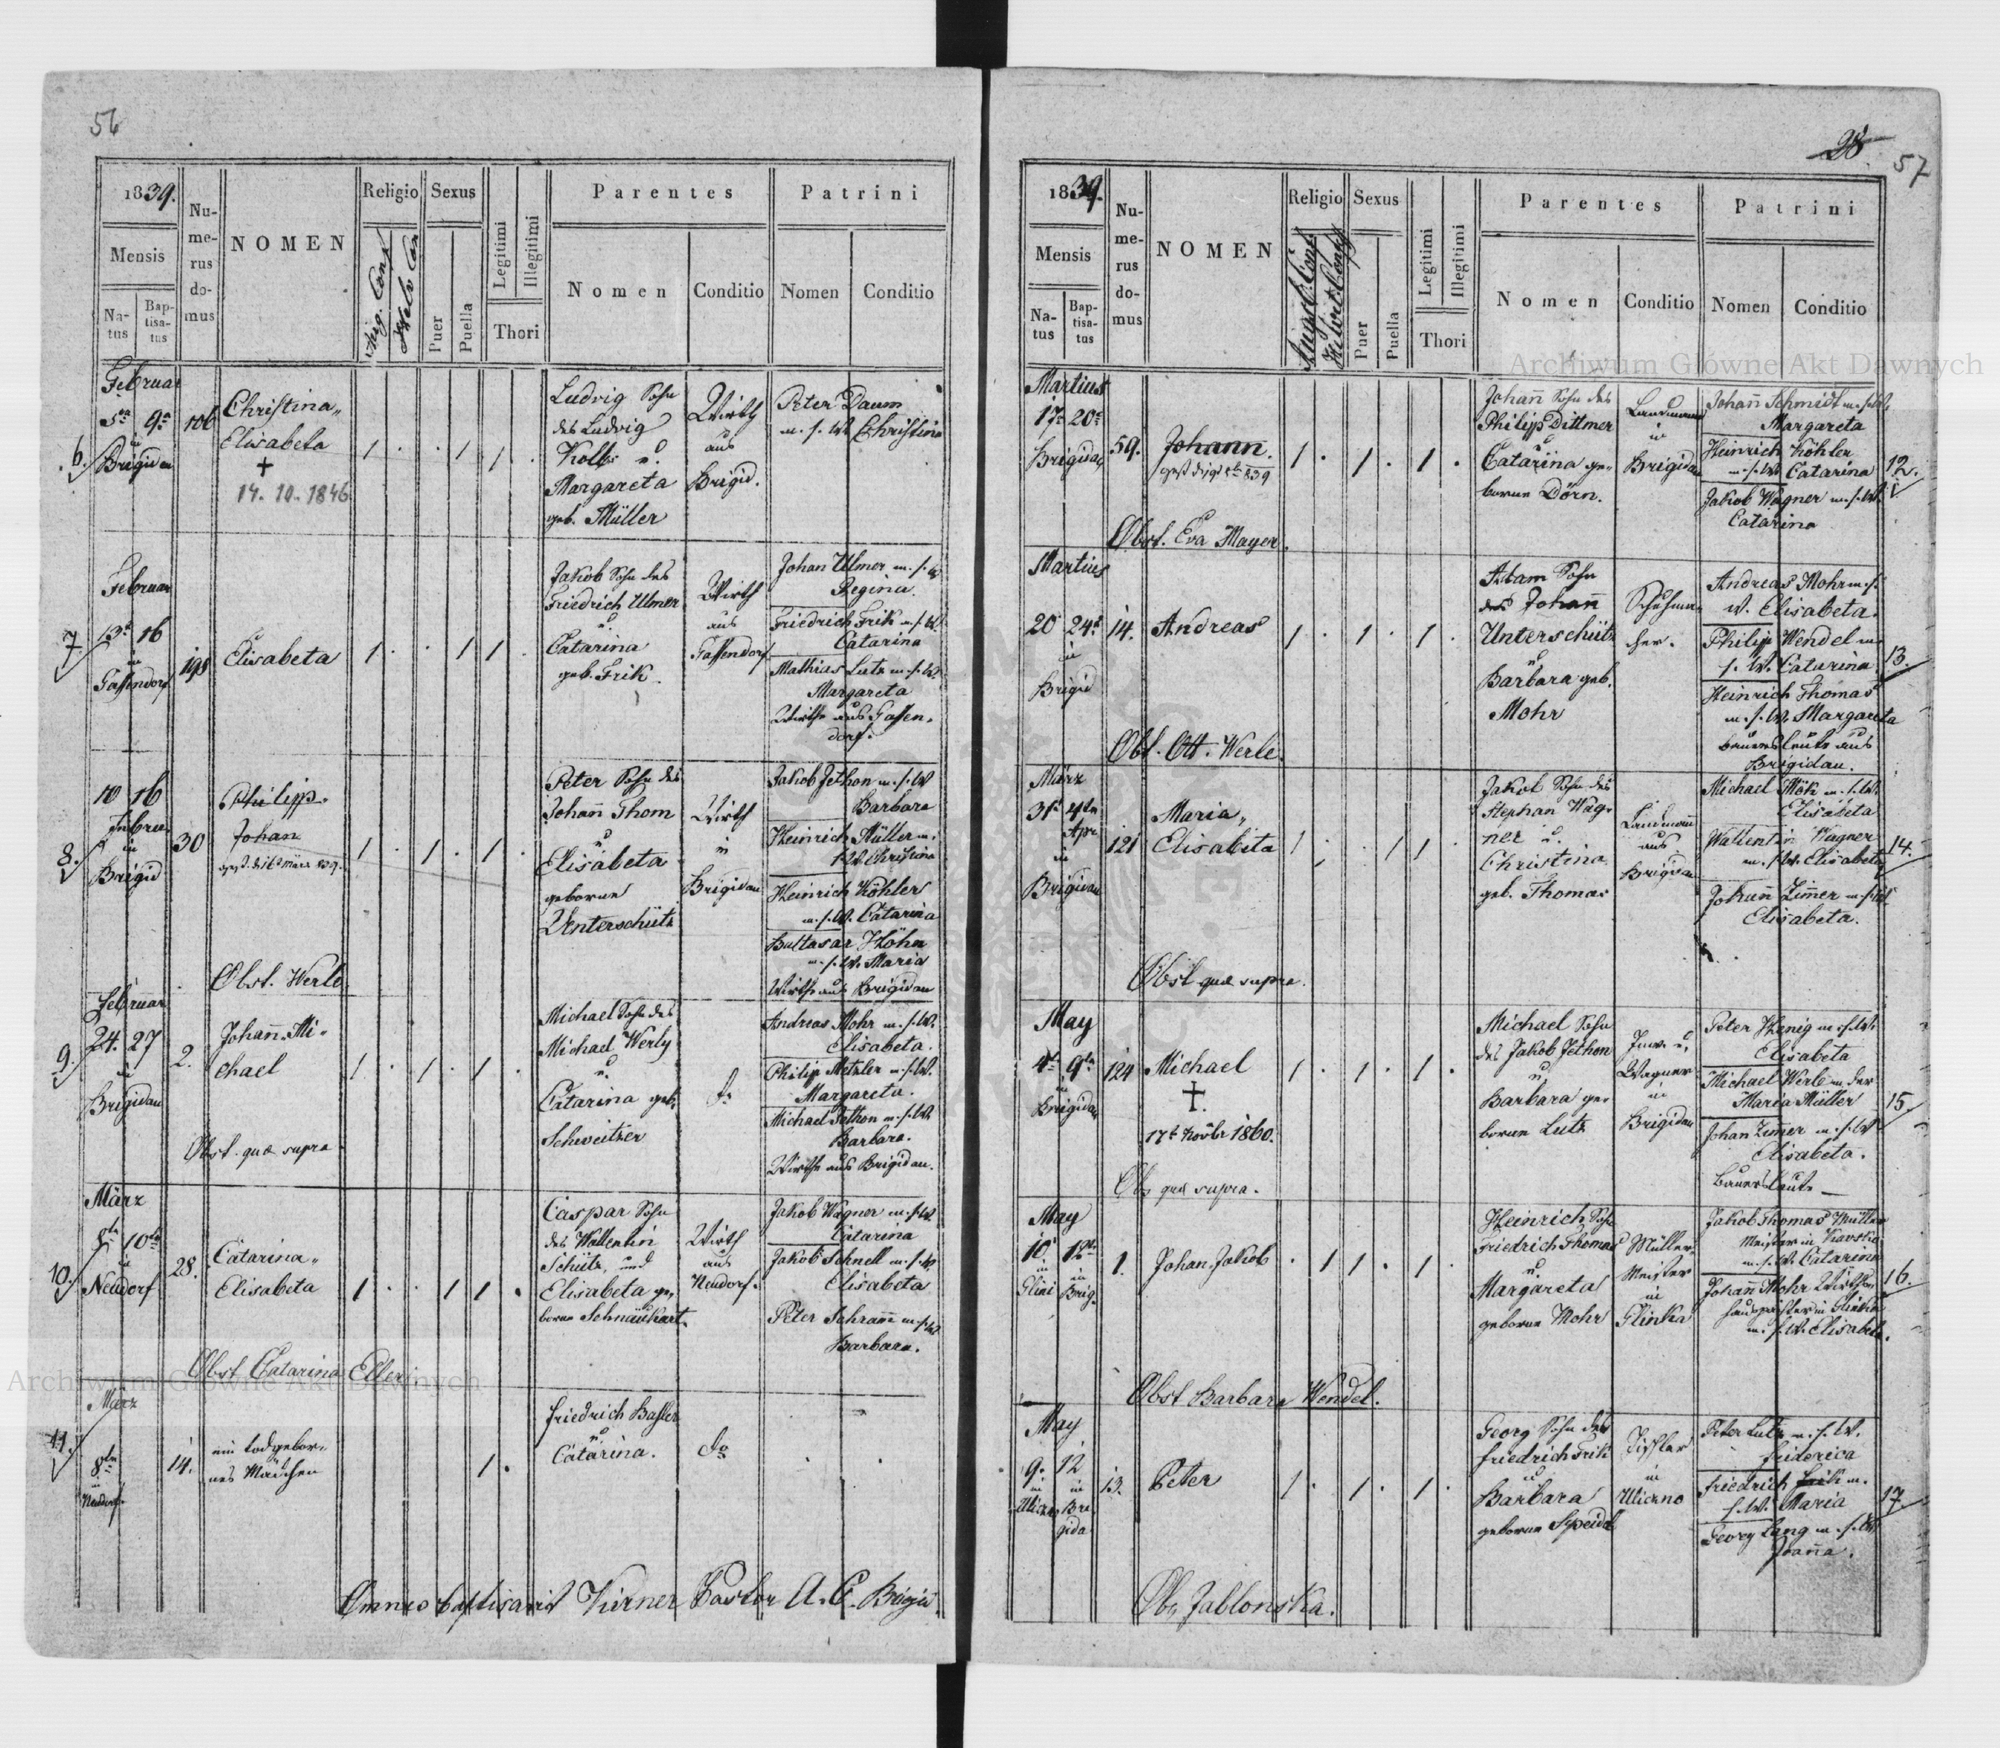 56
1839.
Mensis
Na-
tus
Bap-
tisa-
tus
Nu-
me-
rus
do-
mus
NOMEN
Religio
Aug. Conf
Helv Con
Sexus
Puer
Puella
Legitimi
Illegitimi
Thori
Parentes
Nomen
Conditio
Patrini
Nomen
Conditio
Februar
5ta 9a
in
Brigidau
6.
106
Christina„
Elisabeta
+
14. 10. 1846
1 . . 1 1 .
Ludvig Sohn
des Ludvig
Kolb u.
Margareta
geb. Müller
Wirth
aus
Brigid.
Peter Daum
m. s. W. Christina
Februar
13t 16
in
Gassendorf
7.
198
Elisabeta
1 . . 1 1 .
Jakob Sohn des
Friedrich Ulmer
u.
Catarina
geb. Frik.
Wirth
aus
Gassendorf
Johan Ulmer m. s. W
Regina.
Friedrich Frik m. s. W.
Catarina
Mathias Lutz m. s. W.
Margareta
Wirthe aus Gassen-
dorf.
10 16
Febru
in
Brigid
8.
30
Philipp
Johan
gest. d. 16 März 839.
1 . 1 . 1 .
Peter Sohn des
Johañ Thom
u
Elisabeta
geborne
Unterschütz
Wirth
in
Brigidau
Jakob Jethon m. s. W
Barbara
Heinrich Müller m.
s. W. Christina
Heinrich Köhler
m. s. W. Catarina
Baltasar Höhn
m. s. W. Maria
Wirthe aus Brigidau
Obst. Werle
Februar
24. 27
in
Brigidau
9.
2.
Johañ Mi-
chael
1 . 1 . 1 .
Michael Sohn des
Michael Werly
u.
Catarina geb.
Schweitzer
do
Andreas Mohr m. s. W.
Elisabeta.
Philip Metzler m. s. W.
Margareta.
Michael Jethon m. s. W
Barbara.
Wirthe aus Brigidau.
Obst. quæ supra
März
8ta 10ta
in
Neudorf
10.
28.
Catarina„
Elisabeta
1 . . 1 1 .
Caspar Sohn
des Wallentin
Schütz, und
Elisabeta ge-
borne Schnäukart.
Wirth
aus
Neudorf.
Jakob Wagner m. s. W.
Catarina
Jakob Schnell m. s. W
Elisabeta
Peter Schram̄ m. s. W
Barbara.
Obst Catarina Eller
März
8ta
in
Neudorf
11.
14.
ein todgebor-
nes Mädchen
1 .
Friedrich Baßler
u
Catarina.
do
Omnes baptisavit Kierner Pastor A. C. Brigid.
28
57
1839.
Mensis
Na-
tus
Bap-
tisa-
tus
Nu-
me-
rus
do-
mus
NOMEN
Religio
Augsb. Conf
Helvet. Conf
Sexus
Puer
Puella
Legitimi
Illegitimi
Thori
Parentes
Nomen
Conditio
Patrini
Nomen
Conditio
Martius
17 20
Brigidau
59.
Johann.
1 . 1 . 1 .
Johañ Sohn des
Philipp Dittmer
u
Catarina ge-
borne Dörn.
Landmann
in
Brigidau
Johañ Schmidt m. s. W.
Margareta
Heinrich Köhler
m. s. W. Catarina
Jakob Wagner m. s. W.
Catarina
12.
Obst. Eva Mayer.
Martius
20 24t
in
Brigid
14.
Andreas
1 . 1 . 1 .
Adam Sohn
des Johañ
Unterschütz
u
Barbara geb.
Mohr
Schuhma-
cher.
Andreas Mohr m. s.
W. Elisabeta.
Philip Wendel m.
s. W. Catarina
Heinrich Thomas
m. s. W. Margareta
Bauersleute aus
Brigidau.
13.
Obst. Ott. Werle
März
31t 4ten
Apr.
in
Brigidau
121
Maria„
Elisabeta
1 . . 1 1 .
Jakob Sohn des
Stephan Wag-
ner u.
Christina
geb. Thomas
Landmañ
aus
Brigidau
Michael Mök m. s. W.
Elisabeta
Wallentin Wagner
m. s. W. Elisabeta
Johañ Zim̄er m. s. W.
Elisabeta.
14.
Obst quæ supra.
May
4ta 9ta
in
Brigidau
124
Michael
+
17t Novbr 1860.
1 . 1 . 1 .
Michael Sohn
des Jakob Jethon
u.
Barbara ge-
borne Lutz
Inw. u.
Wagner
in
Brigidau
Peter Hänig m. s. W.
Elisabeta
Michael Werle m. der
Maria Müller
Johan Zim̄er m. s. W
Elisabeta.
Bauersleute —
15.
Ob. quæ supra.
May
10 12ta
in in
Glini Brig.
1.
Johan Jakob
. 1 1 . 1 .
Heinrich Sohn
Friedrich Thomas
u
Margareta
geborne Mohr
Müller-
Meister
in
Glinka
Jakob Thomas Müller
Meister in
m. s. W. Catarina
Johañ Mohr
in Glinka
m. s. W. Elisabeta.
16.
Obst Barbara Wendel.
May
9. 12
in in
Uliczno Bri
gida
13.
Peter
1 . 1 . 1 .
Georg Sohn des
Friedrich Frik
u
Barbara
geborne Speidel
Tischler
in
Uliczno
Peter Lutz m. s. W.
Friderica
Friedrich m.
s. W. Maria
Georg Lang m. s. W.
Joaña.
17.
Ob. Jablonska.
Archiwum Główne Akt Dawnych
Archiwum Główne Akt Dawnych